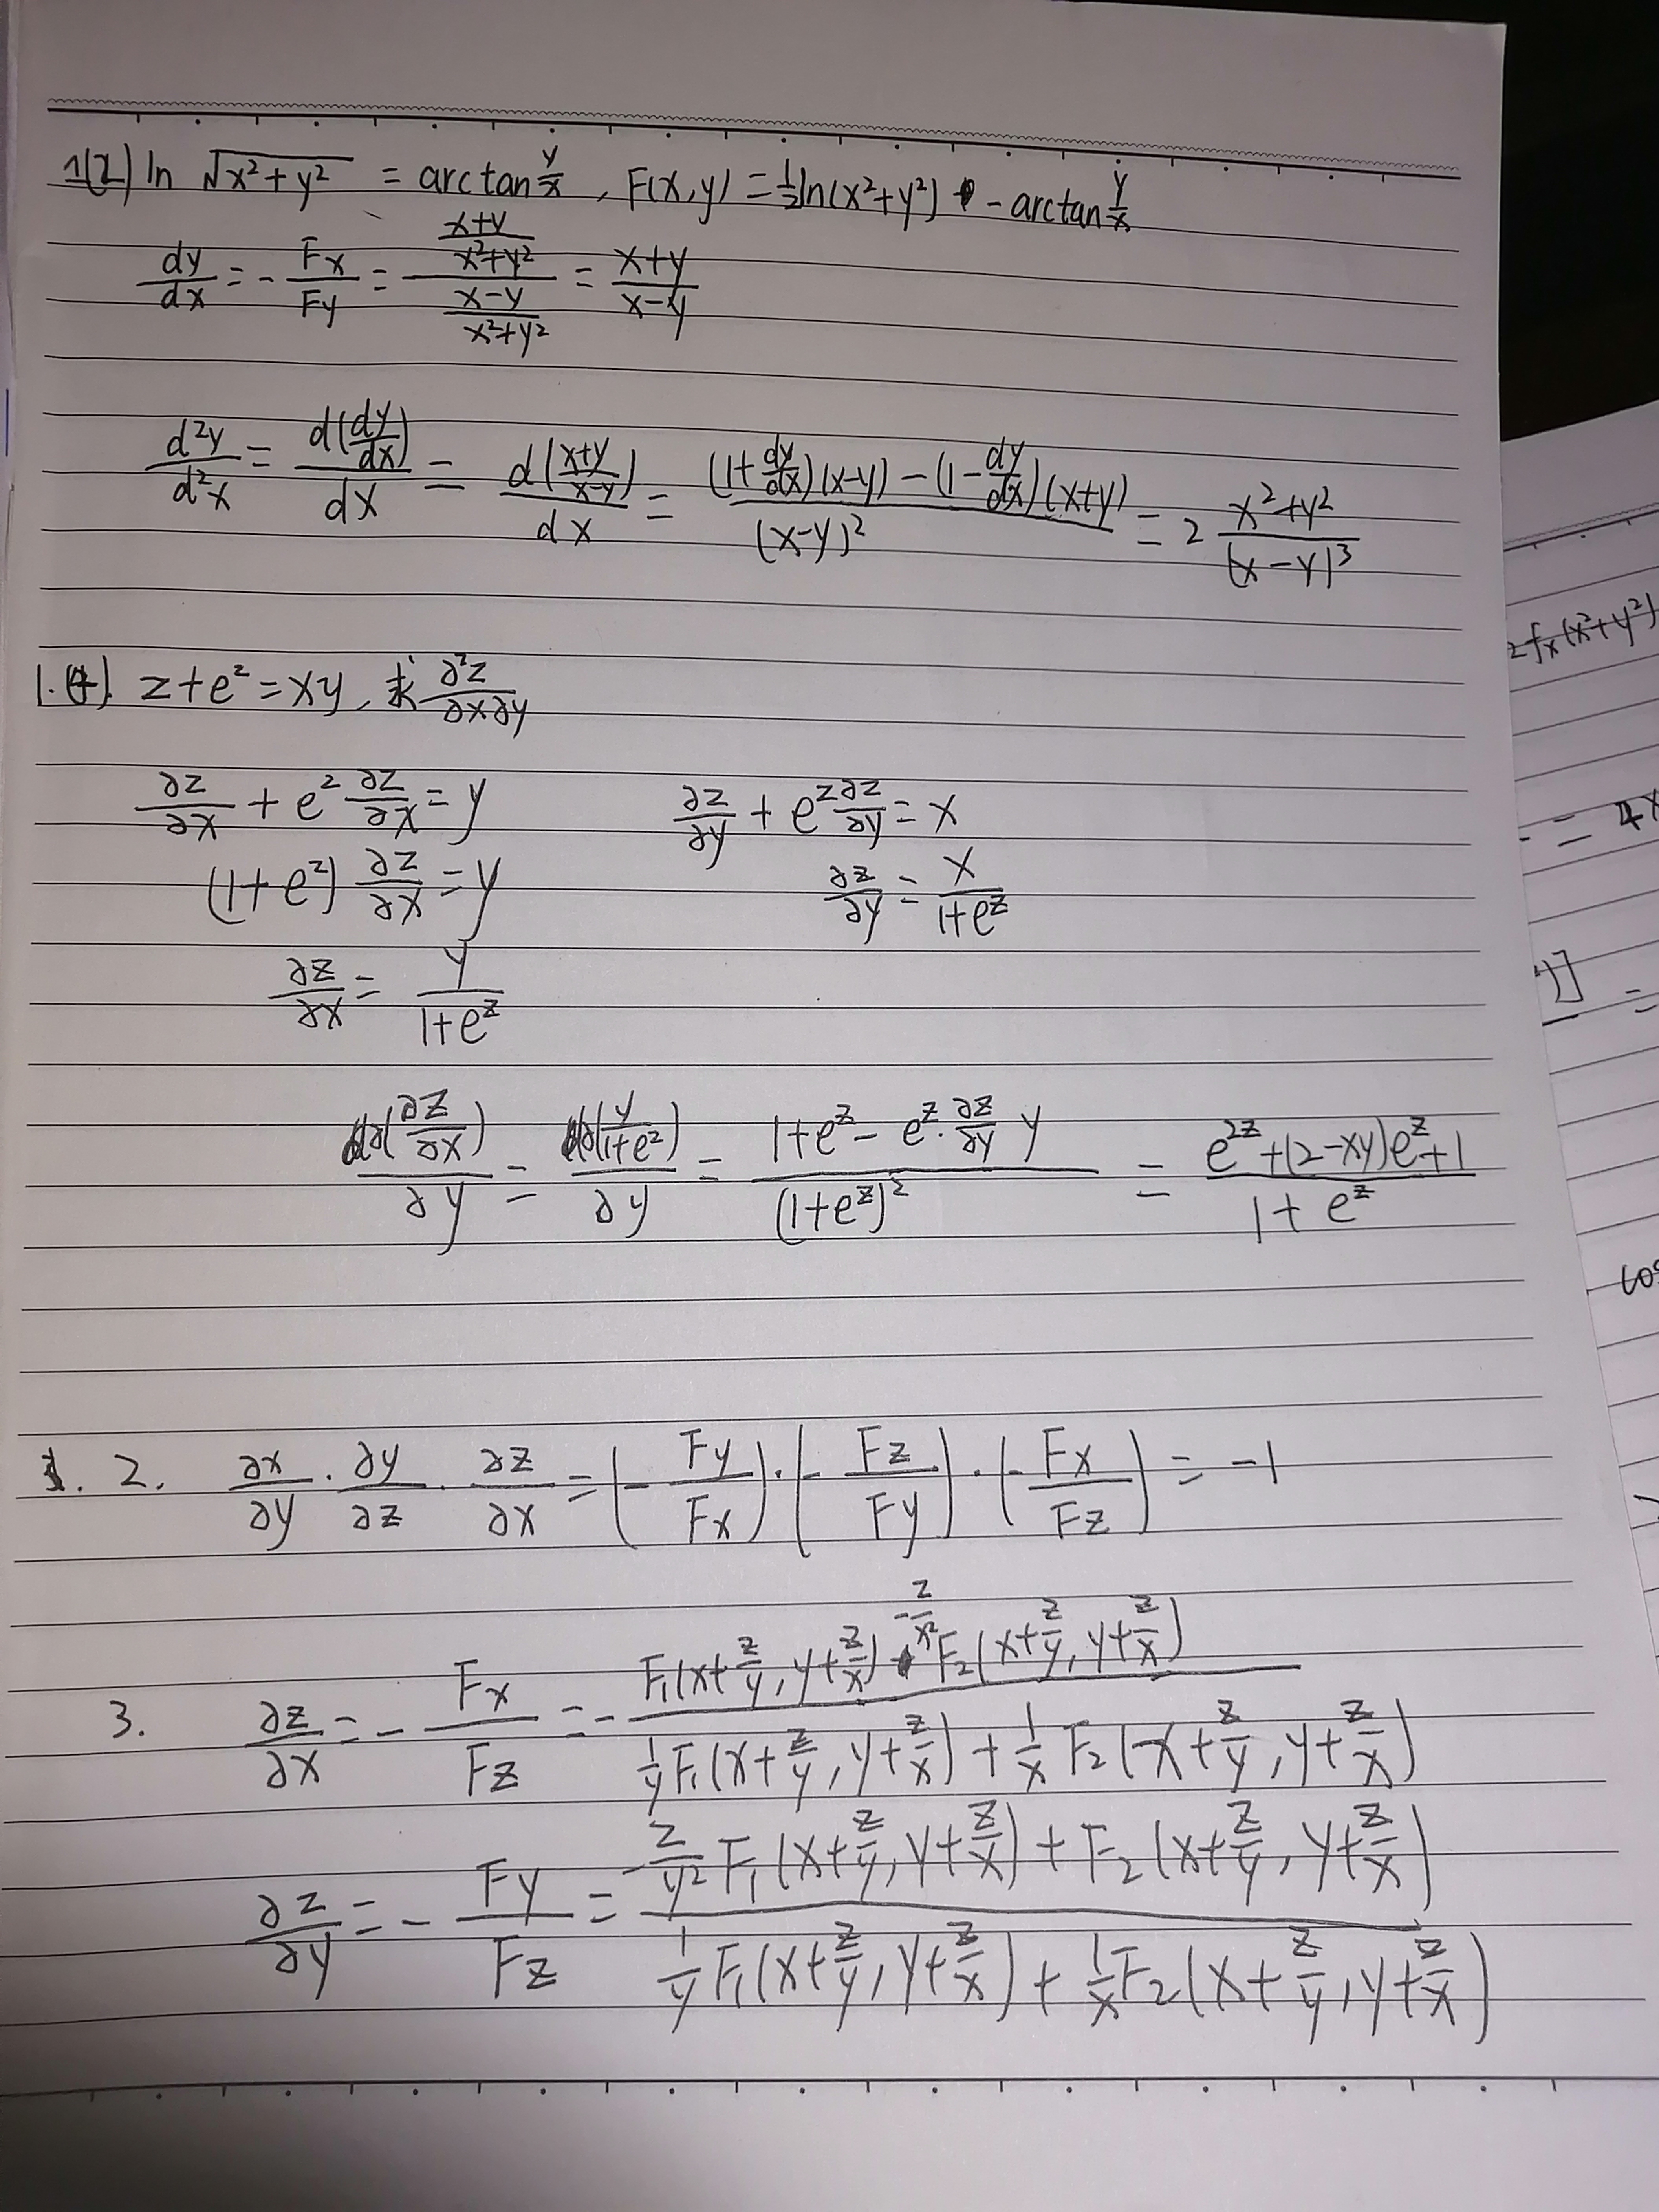 1(2) ln √(x²+y²) = arctan y/x , F(x,y) = 1/2 ln(x²+y²) - arctan y/x
dy/dx = - Fx/Fy = ((x+y)/(x²+y²))/((x-y)/(x²+y²)) = (x+y)/(x-y)
d²y/d²x = d(dy/dx)/dx = d((x+y)/(x-y))/dx = ((1+dy/dx)(x-y) - (1-dy/dx)(x+y))/(x-y)² = 2 (x²+y²)/(x-y)³
1.(4). z+e^z = xy , 求 ∂²z/∂x∂y
∂z/∂x + e^z ∂z/∂x = y    ∂z/∂y + e^z ∂z/∂y = x
(1+e^z) ∂z/∂x = y    ∂z/∂y = x/(1+e^z)
∂z/∂x = y/(1+e^z)
∂(∂z/∂x)/∂y = ∂(y/(1+e^z))/∂y = (1+e^z - e^z · ∂z/∂y y)/(1+e^z)² = (e^2z + (2-xy)e^z + 1)/(1+e^z)
2. ∂x/∂y · ∂y/∂z · ∂z/∂x = (- Fy/Fx) · (- Fz/Fy) · (- Fx/Fz) = -1
3. ∂z/∂x = - Fx/Fz = - (F₁(x+z/y, y+z/x) - z/x² F₂(x+z/y, y+z/x))/(1/y F₁(x+z/y, y+z/x) + 1/x F₂(x+z/y, y+z/x))
∂z/∂y = - Fy/Fz = (-z/y² F₁(x+z/y, y+z/x) + F₂(x+z/y, y+z/x))/(1/y F₁(x+z/y, y+z/x) + 1/x F₂(x+z/y, y+z/x))
2fx(x²+y²)
= 4x
y)] =
cos